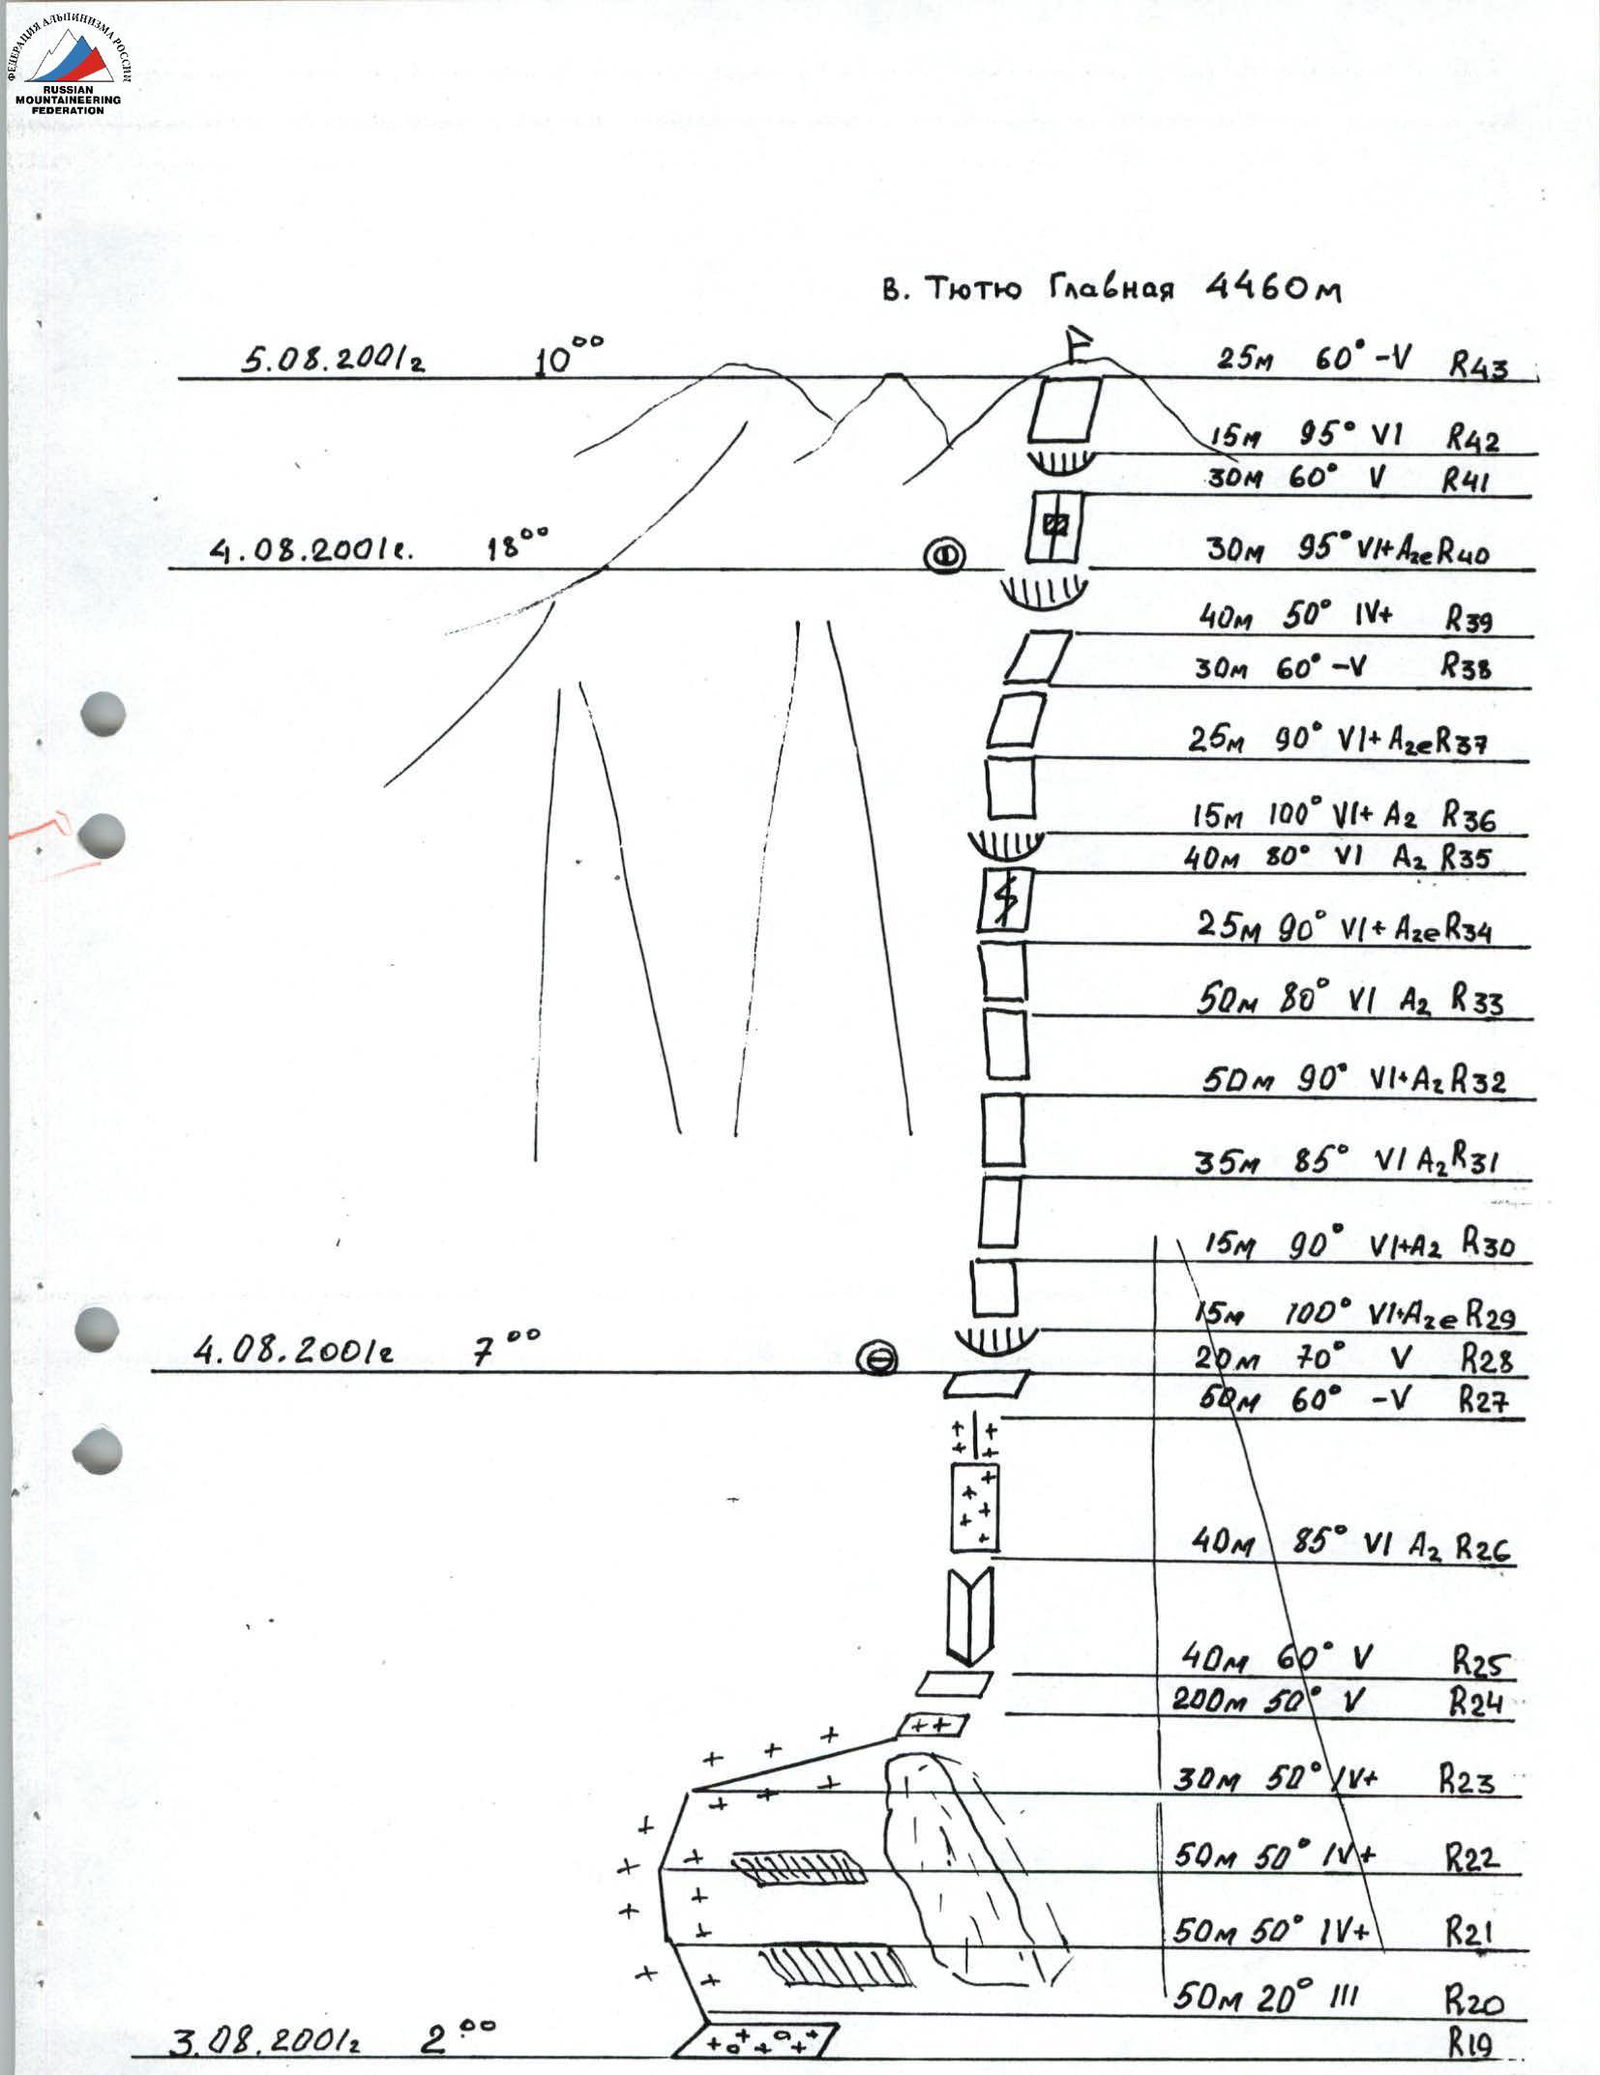 ФЕДЕРАЦИЯ АЛЬПИНИЗМА РОССИИ
RUSSIAN
MOUNTAINEERING
FEDERATION
В. Тютю Главная 4460м
5.08.2001г 10⁰⁰ 25м 60° -V R43
15м 95° VI R42
30м 60° V R41
4.08.2001г. 18⁰⁰ 30м 95° VI+ A2e R40
40м 50° IV+ R39
30м 60° -V R38
25м 90° VI+ A2e R37
15м 100° VI+ A2 R36
40м 80° VI A2 R35
25м 90° VI+ A2e R34
50м 80° VI A2 R33
50м 90° VI+ A2 R32
35м 85° VI A2 R31
15м 90° VI+ A2 R30
15м 100° VI+ A2e R29
4.08.2001г 7⁰⁰ 20м 70° V R28
50м 60° -V R27
40м 85° VI A2 R26
40м 60° V R25
200м 50° V R24
30м 50° IV+ R23
50м 50° IV+ R22
50м 50° IV+ R21
50м 20° III R20
3.08.2001г 2⁰⁰ R19